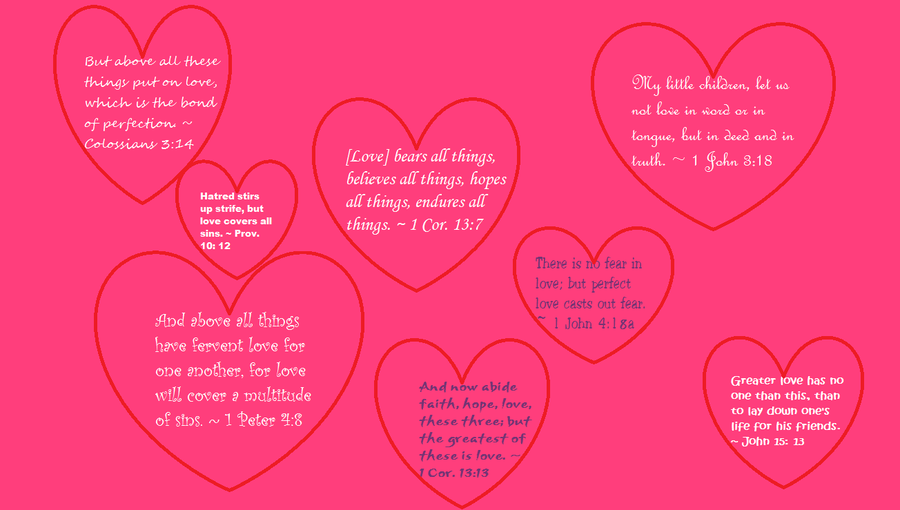 But above all these
things put on love,
which is the bond
of perfection. ~
Colossians 3:14
Hatred stirs
up strife, but
love covers all
sins. ~ Prov.
10: 12
[Love] bears all things,
believes all things, hopes
all things, endures all
things. ~ 1 Cor. 13:7
My little children, let us
not love in word or in
tongue, but in deed and in
truth. ~ 1 John 3:18
There is no fear in
love; but perfect
love casts out fear.
~ 1 John 4:18a
And above all things
have fervent love for
one another, for love
will cover a multitude
of sins. ~ 1 Peter 4:8
And now abide
faith, hope, love,
these three; but
the greatest of
these is love. ~
1 Cor. 13:13
Greater love has no
one than this, than
to lay down one's
life for his friends.
~ John 15: 13